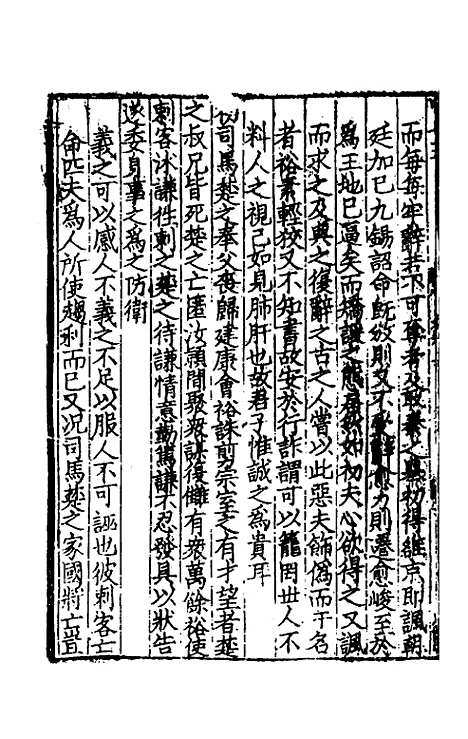 而每每牢辭若不可奪者及敢秦之縣初得維京即諷朝
廷加已九錫詔命旣放則又不敢辭愈力則遷愈峻至於
為王地已逼矣而矯讓之態猶如初夫心欲得之又諷
而求之及與之復辭之古之人嘗以此惡夫飾僞而干名
者裕素輕狡又不知書故安於行詐謂可以籠罔世人不
料人之視已如見肺肝也故君子惟誠之為貴耳
司馬楚之奉父喪歸建康會裕誅剪宗室之有才望者楚
之叔兄皆死楚之亡匿汝潁間聚衆謀復讎有衆萬餘裕使
刺客沐謙徃刺之楚之待謙情意勤篤謙不忍發具以狀告
遂委身事之為之防衛
義之可以感人不義之不足以服人不可誣也彼刺客亡
命匹夫為人所使趨利而已又況司馬楚之家國將亡晉